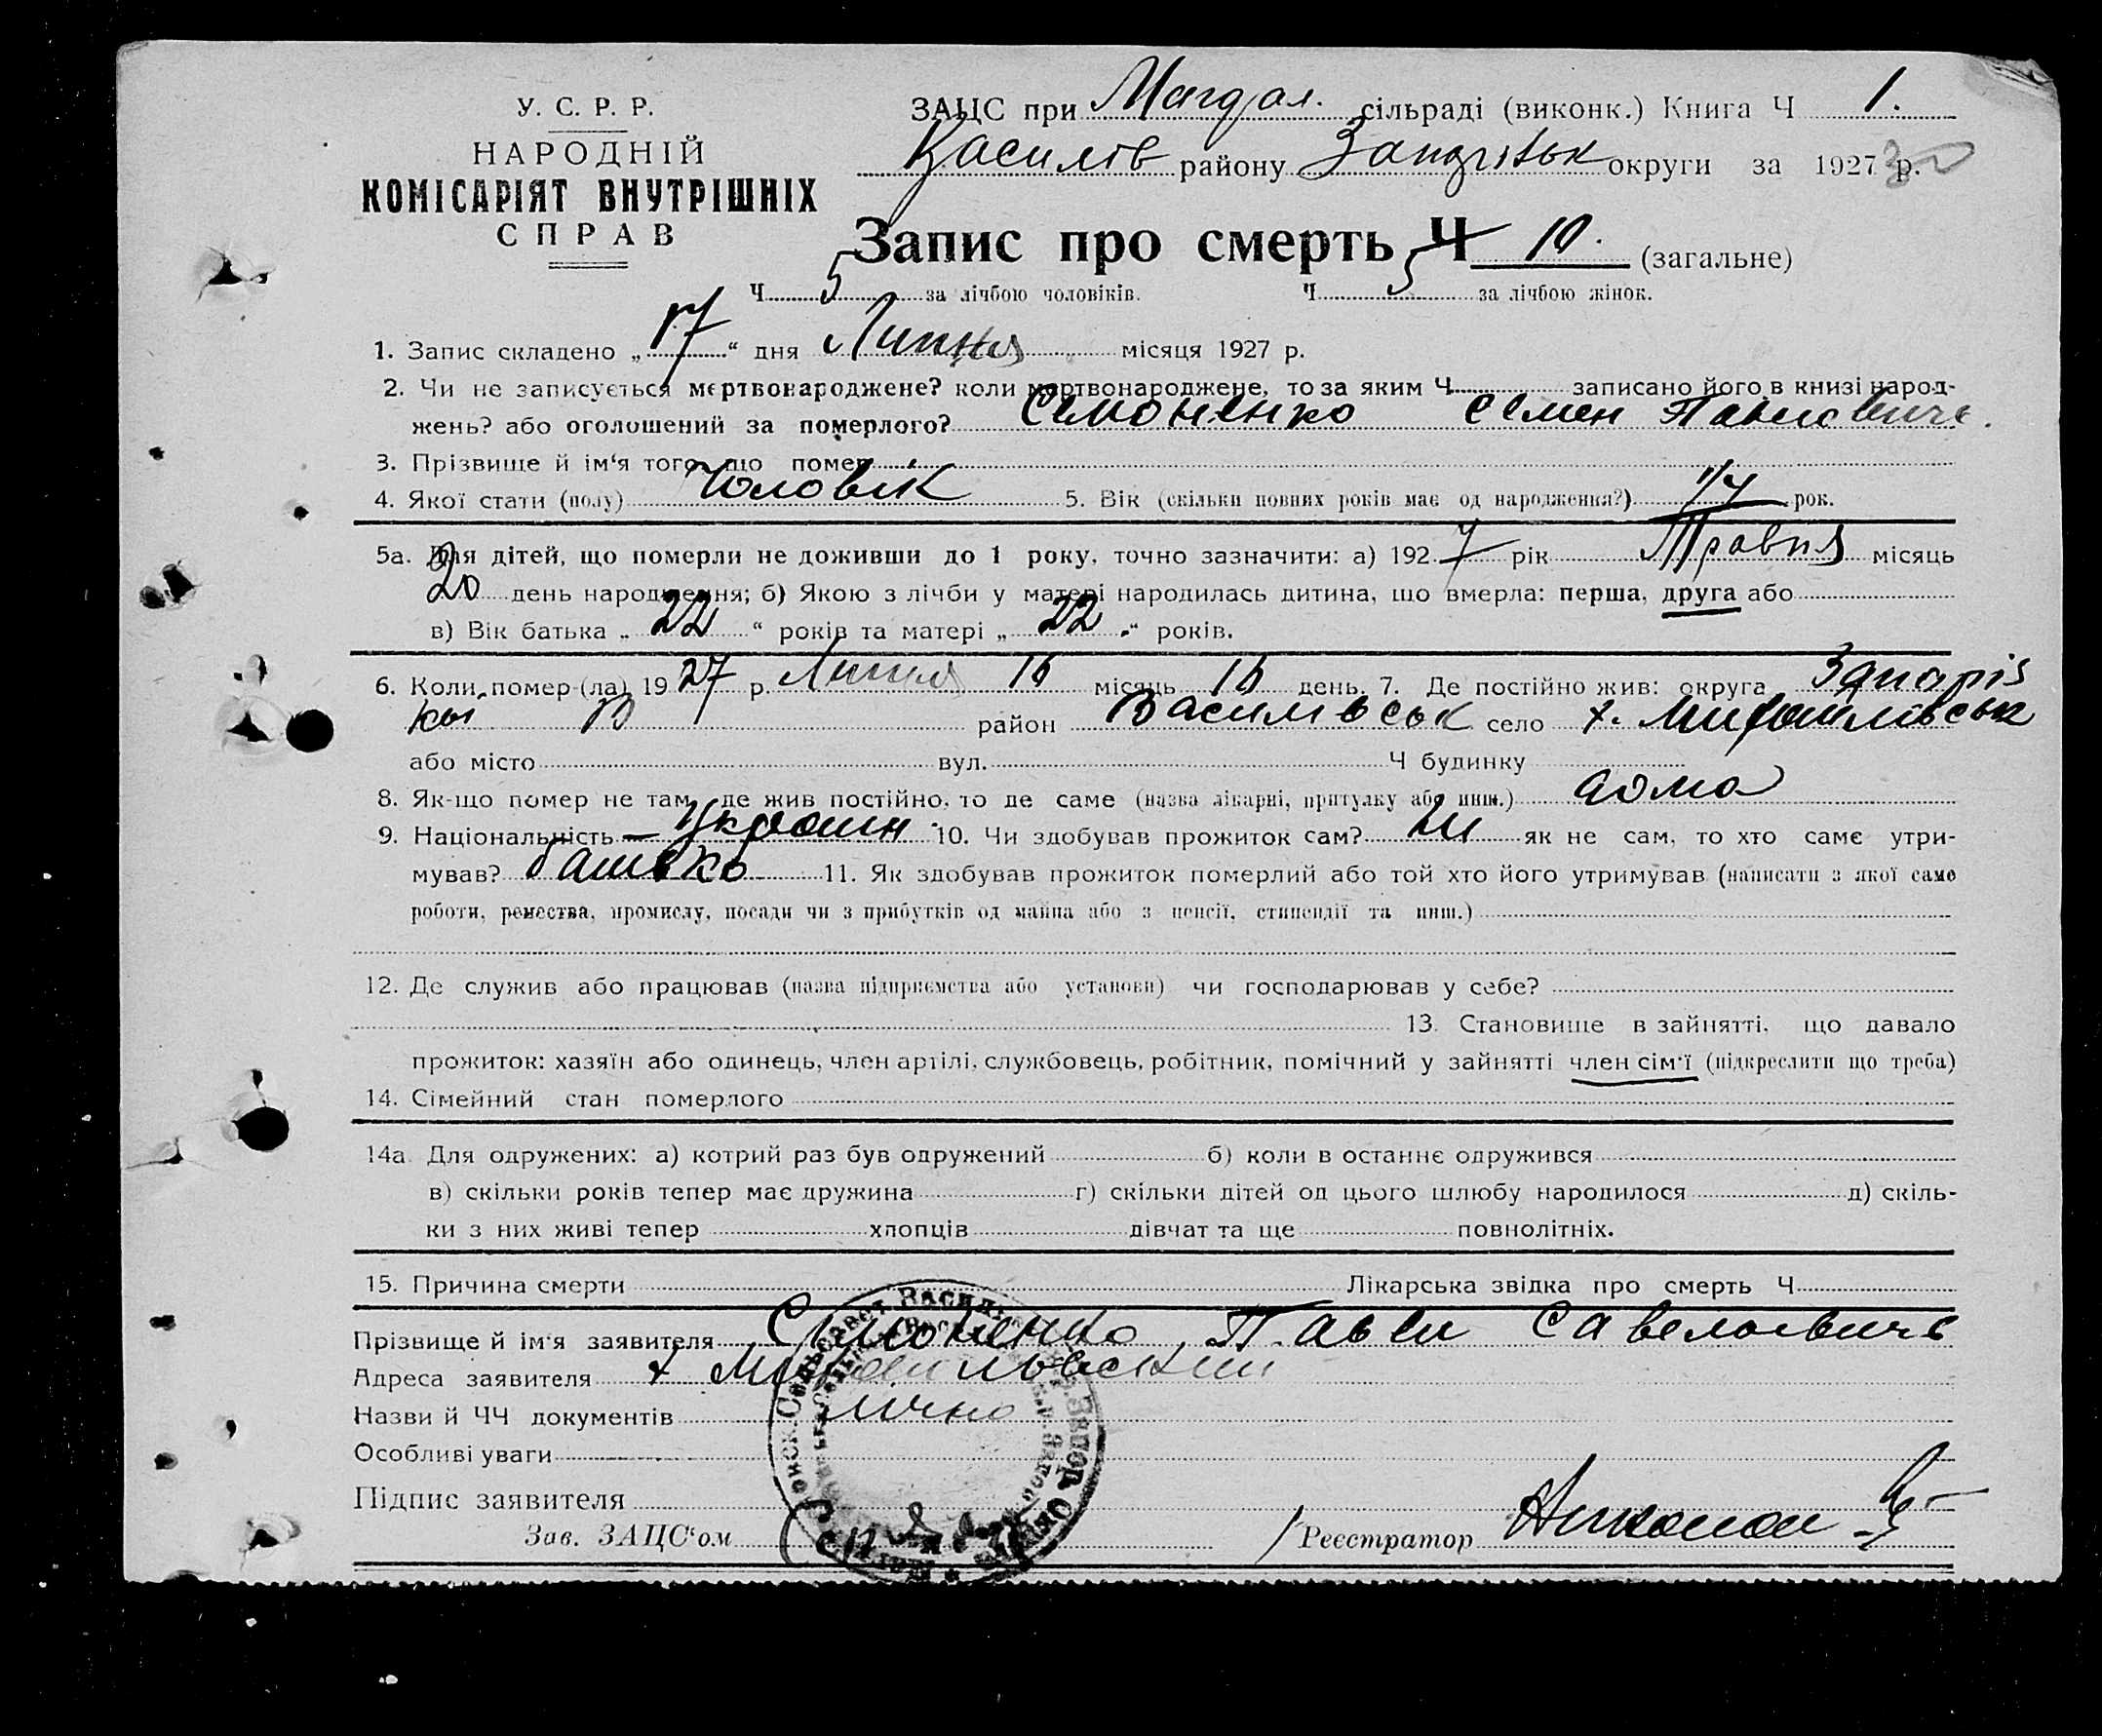 У. С. Р. Р.
НАРОДНІЙ
КОМІСАРІЯТ ВНУТРІШНІХ
СПРАВ
ЗАЦС при Магдал. сільраді (виконк.) Книга Ч 1.
Василів району округи за 1927 р. 30
Запис про смерть Ч 10. (загальне)
Ч 5 за лічбою чоловіків. Ч 5 за лічбою жінок.
1. Запис складено „ 17 “ дня Липня місяця 1927 р.
2. Чи не записується мертвонароджене? коли мертвонароджене, то за яким Ч записано його в книзі народ-
жень? або оголошений за померлого? Симоненко Семен Павлович
3. Прізвище й ім'я того, що помер
4. Якої стати (полу) Чоловік 5. Вік (скільки повних років має од народження?) рок.
5а. Для дітей, що померли не доживши до 1 року, точно зазначити: а) 192 7 рік Травня місяць
20 день народження; б) Якою з лічби у матері народилась дитина, що вмерла: перша, друга або
в) Вік батька „ 22 “ років та матері „ 22 “ років.
6. Коли помер (ла) 19 27 р. Липня 16 місяць 16 день. 7. Де постійно жив: округа Запоріз
кій В район Василівськ село х. Михайлівськ
або місто вул. Ч будинку
8. Як-що помер не там, де жив постійно, то де саме (назва лікарні, притулку або инш.) дома
9. Національність — Україин 10. Чи здобував прожиток сам? Ні як не сам, то хто саме утри-
мував? батько 11. Як здобував прожиток померлий або той хто його утримував (написати з якої саме
роботи, ремества, промислу, посади чи з прибутків од майна або з пенсії, стипендії та инш.)
12. Де служив або працював (назва підприємства або установи) чи господарював у себе?
13. Становище в зайнятті, що давало
прожиток: хазяїн або одинець, член артілі, службовець, робітник, помічний у зайнятті член сім'ї (підкреслити що треба)
14. Сімейний стан померлого
14а Для одружених: а) котрий раз був одружений б) коли в останнє одружився
в) скільки років тепер має дружина г) скільки дітей од цього шлюбу народилося д) скіль-
ки з них живі тепер хлопців дівчат та ще повнолітніх.
15. Причина смерти Лікарська звідка про смерть Ч
Прізвище й ім'я заявителя Симоненко Павел Савелоевичь
Адреса заявителя х Михайльвский
Назви й ЧЧ документів лічно
Особливі уваги
Підпис заявителя
Зав. ЗАЦС'ом Реєстратор